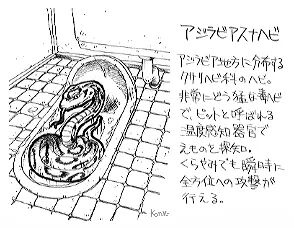 アジラビアスナヘビ
アジラビア地方に分布する
クサリヘビ科のヘビ。
非常にどう猛な毒ヘビ
で、ピットと呼ばれる
温度感知器官で
えものを探知。
くらやみでも瞬時に
全方位への攻撃が
行える。